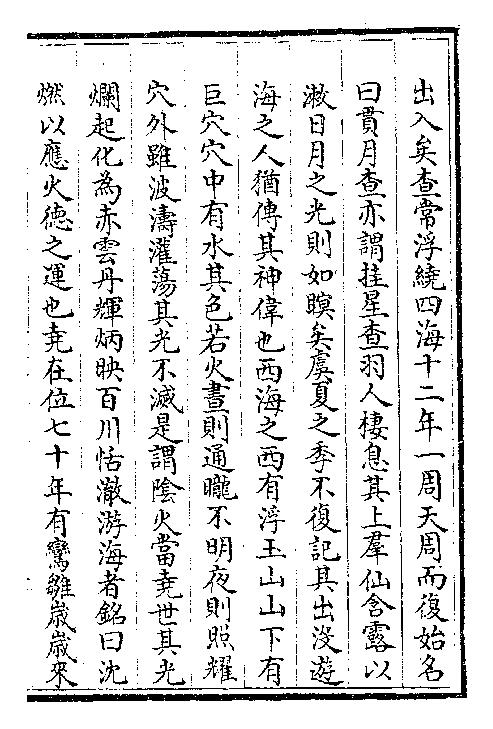 出入矣查常浮繞四海十二年一周天周而復始名
曰貫月查亦謂挂星查羽人棲息其上羣仙含露以
漱日月之光則如瞑矣虞夏之季不復記其出没遊
海之人猶傳其神偉也西海之西有浮玉山山下有
巨穴穴中有水其色若火晝則通曨不明夜則照耀
穴外雖波濤灌蕩其光不滅是謂陰火當堯世其光
爛起化為赤雲丹輝炳映百川恬澈游海者銘曰沈
燃以應火德之運也堯在位七十年有鸞雛歲歲來